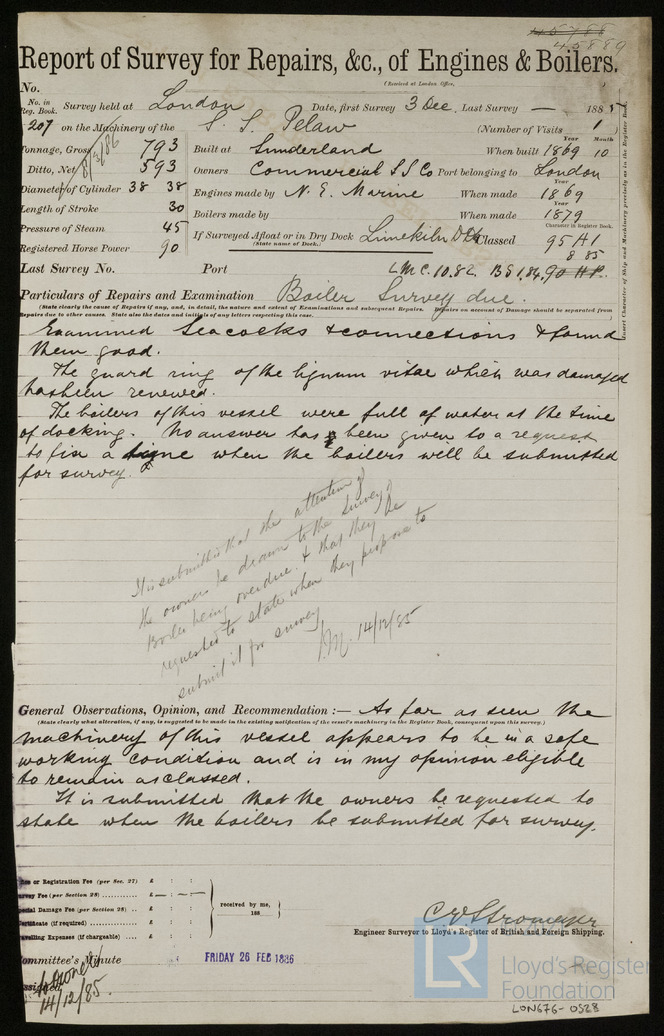 45788
45889
Report of Survey for Repairs, &c., of Engines & Boilers.
(Received at London Office,
No.
No. in Reg. Book. Survey held at London Date, first Survey 3 Dec Last Survey — 1885
207 on the Machinery of the S. S. Pelaw (Number of Visits 1
Tonnage, Gross 793 Built at Sunderland When built Year 1869 Month 10
Ditto, Net 593 Owners Commercial S S Co Port belonging to London
Diameter of Cylinder 38 38 Engines made by N. E. Marine When made Year 1869
Length of Stroke 30 Boilers made by When made Year 1879
Pressure of Steam 45 If Surveyed Afloat or in Dry Dock Limekiln DDk Classed Character in Register Book. 95 A1
(State name of Dock.) 8 85
Registered Horse Power 90
Last Survey No. Port LMC. 10.82. BS 1.84. 90 HP.
Insert Character of Ship and Machinery precisely as in the Register Book
Particulars of Repairs and Examination Boiler Survey due.
(State clearly the cause of Repairs if any, and, in detail, the nature and extent of Examinations and subsequent Repairs. Repairs on account of Damage should be separated from
Repairs due to other causes. State also the dates and initials of any letters respecting this case.
Examined Seacocks & connections & found
them good.
The guard ring of the lignum vitae which was damaged
has been renewed.
The boilers of this vessel were full of water at the time
of docking. No answer has been given to a request
to fix a time when the boilers will be submitted
for survey.
It is submitted that the attention of
the owners be drawn to the Survey of
Boiler being overdue. & that they be
requested to state when they propose to
submit it for survey
14/12/85
General Observations, Opinion, and Recommendation :— As far as seen the
(State clearly what alteration, if any, is suggested to be made in the existing notification of the vessel's machinery in the Register Book, consequent upon this survey.)
machinery of this vessel appears to be in a safe
working condition and is in my opinion eligible
to remain as classed.
It is submitted that the owners be requested to
state when the boilers be submitted for survey.
or Registration Fee (per Sec. 27) £ : :
Survey Fee (per Section 28) £ — : —
Special Damage Fee (per Section 28) £ : :
Certificate (if required) £ : :
Travelling Expenses (if chargeable) £ : :
received by me,
188
C E Stromeyer
Engineer Surveyor to Lloyd's Register of British and Foreign Shipping.
Committee's Minute FRIDAY 26 FEB 1886
14/12/85.
LR Lloyd's Register
Foundation
LON676-0528